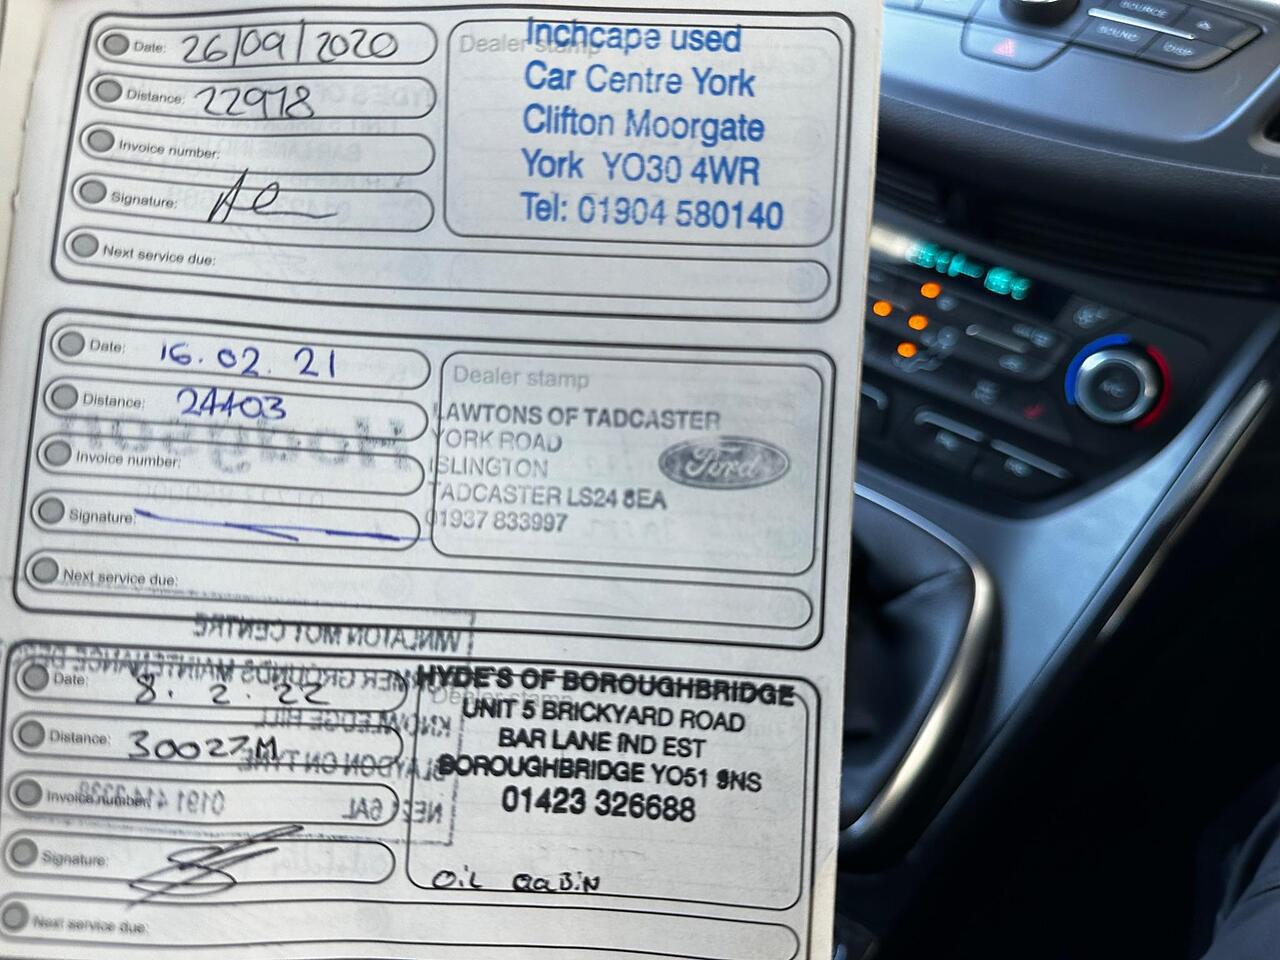 Date: 26/09/2020
Distance: 22978
Invoice number:
Signature:
Next service due:
Dealer stamp
Inchcape used
Car Centre York
Clifton Moorgate
York YO30 4WR
Tel: 01904 580140
Date: 16.02.21
Distance: 24403
Invoice number:
Signature:
Next service due:
Dealer stamp
LAWTONS OF TADCASTER
YORK ROAD
ISLINGTON
TADCASTER LS24 8EA
01937 833997
Ford
Date: 8.2.22
Distance: 30027M
Invoice number:
Signature:
Next service due:
Dealer stamp
HYDE'S OF BOROUGHBRIDGE
UNIT 5 BRICKYARD ROAD
BAR LANE IND EST
BOROUGHBRIDGE YO51 9NS
01423 326688
OIL CABIN
SOURCE
SOUND
DISP
A/C